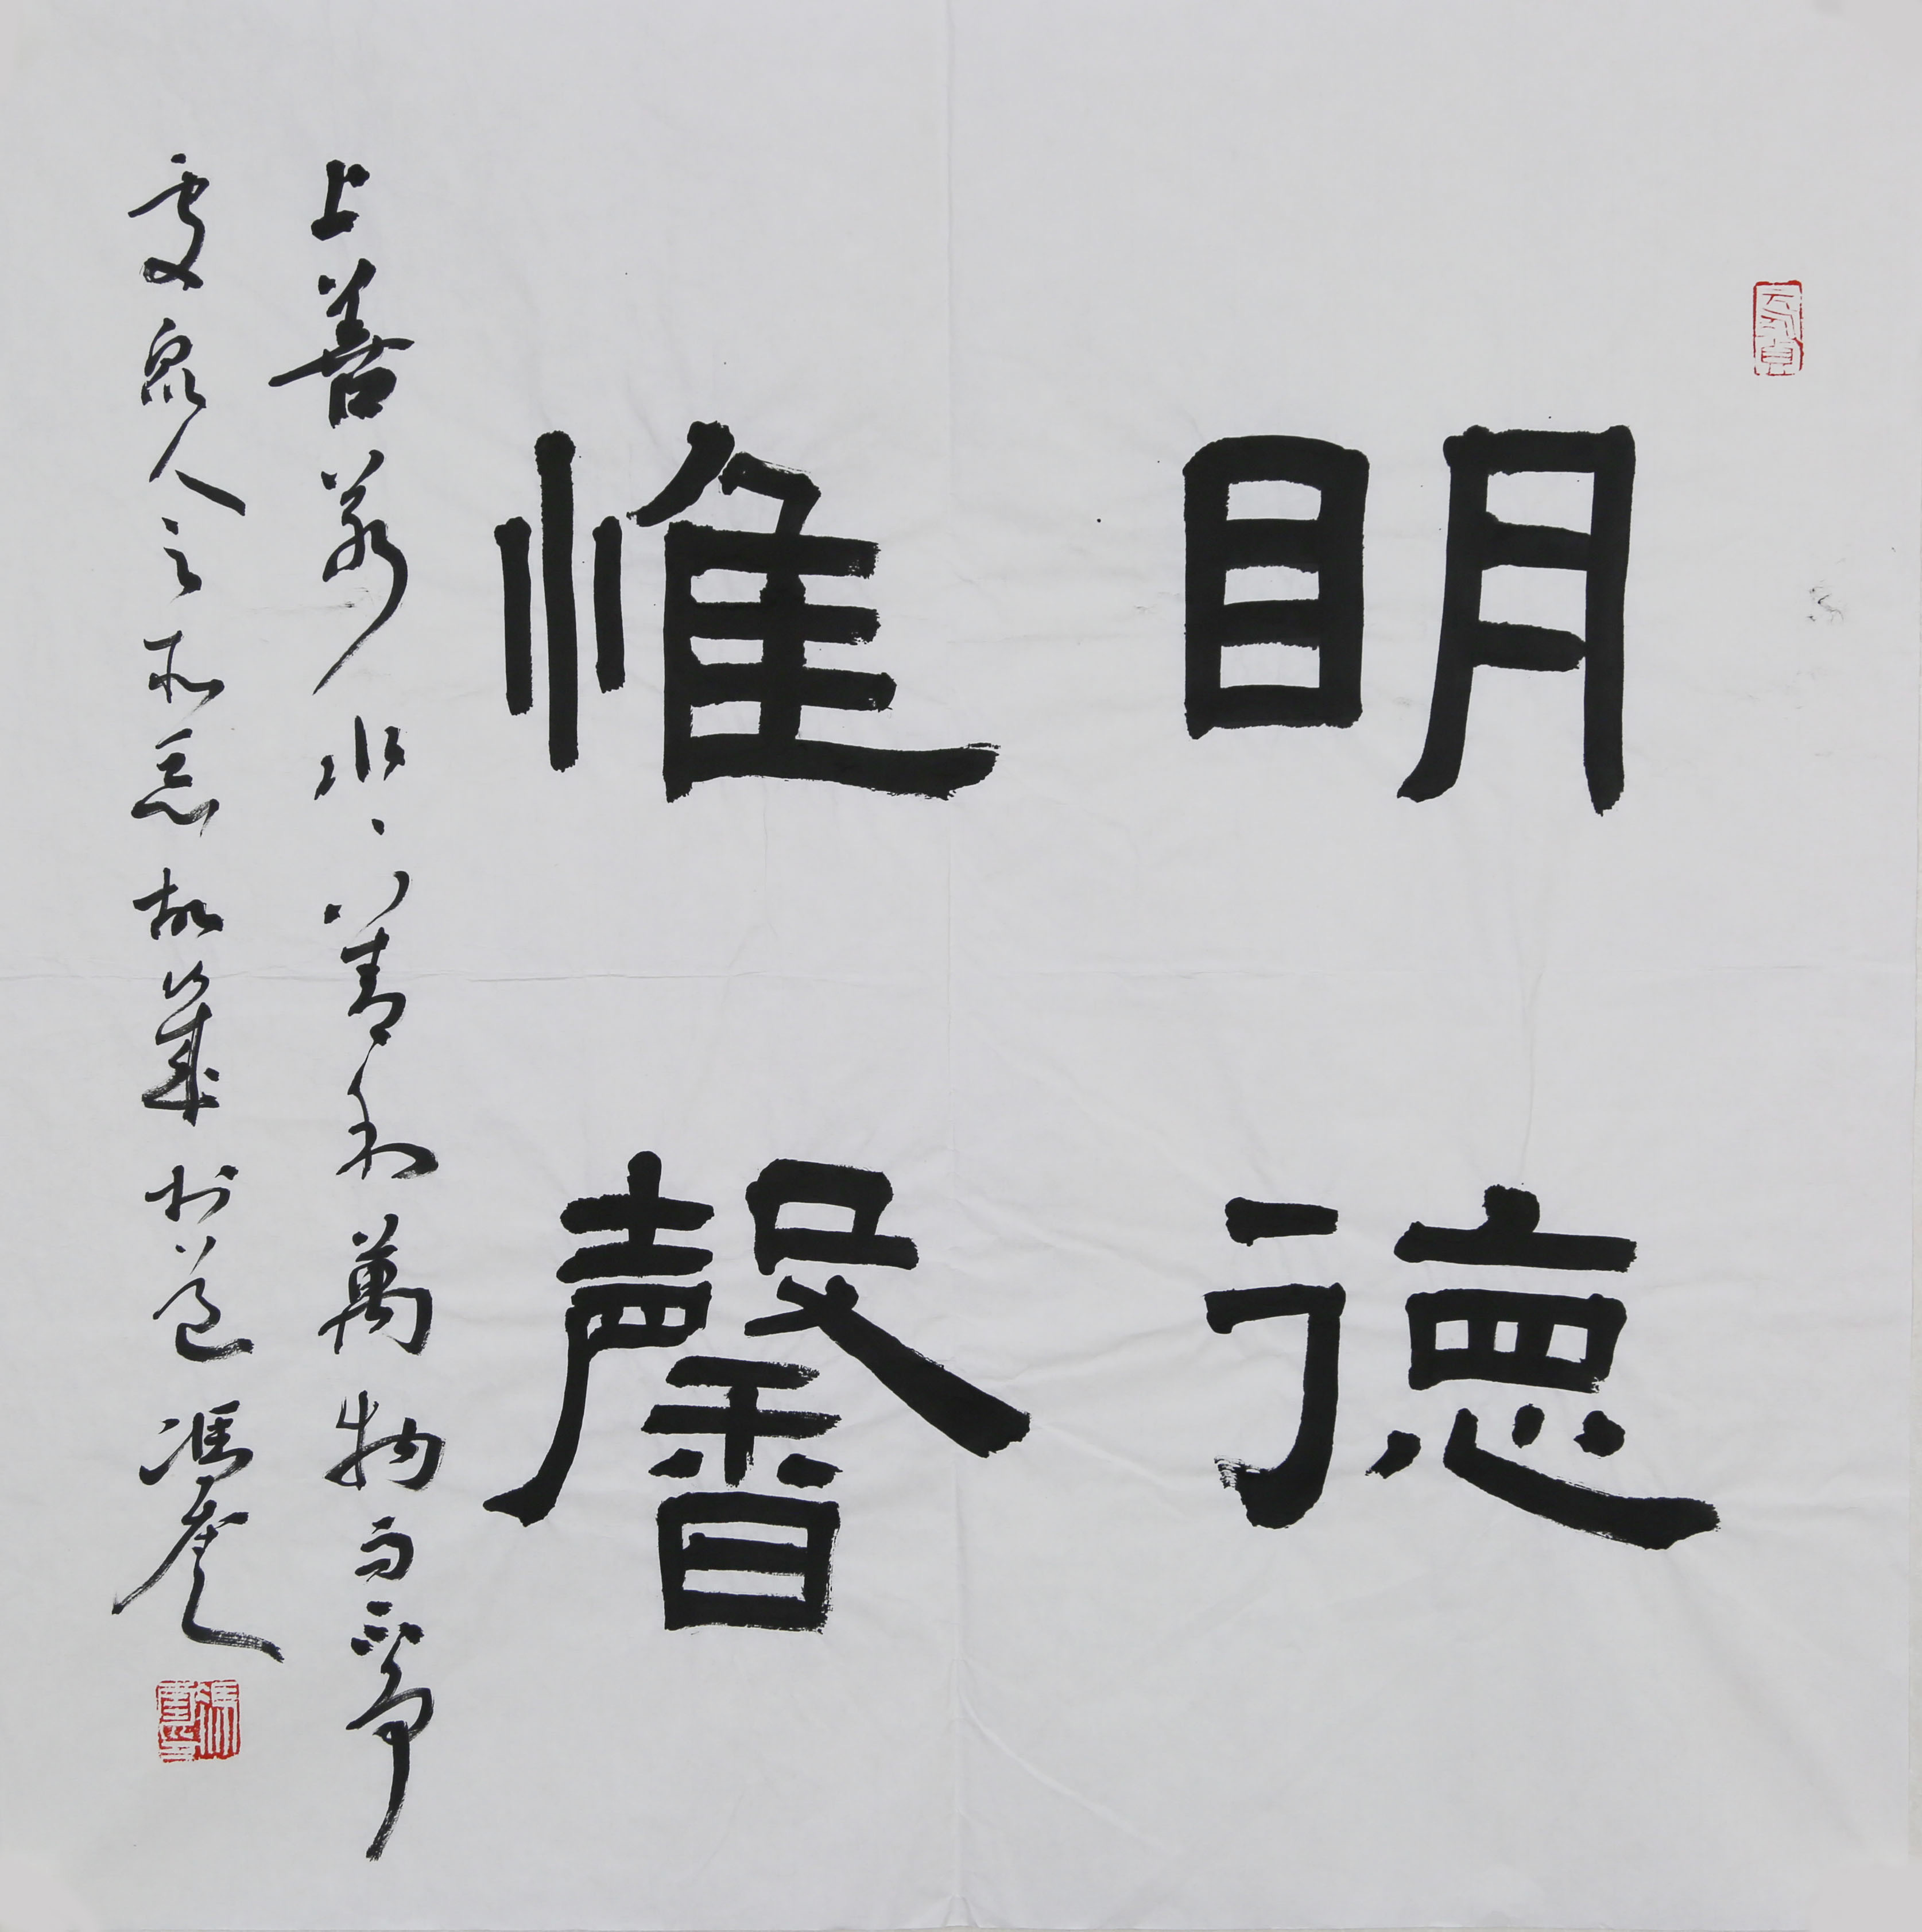 明德
惟馨
上善若水水善利萬物而不爭
處衆人之所惡故幾於道 馮